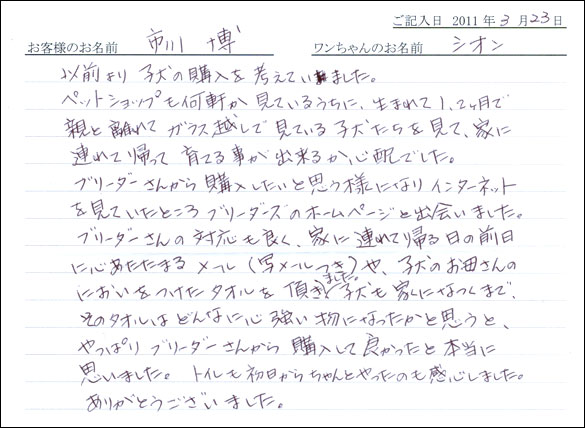 ご記入日 2011年3月23日
お客様のお名前 市川 博 ワンちゃんのお名前 シオン
以前より子犬の購入を考えていました。
ペットショップも何軒か見ているうちに、生まれて1、2ヶ月で
親と離れてガラス越しで見ている子犬たちを見て、家に
連れて帰って育てる事が出来るか心配でした。
ブリーダーさんから購入したいと思う様になりインターネット
を見ていたところブリーダーズのホームページと出会いました。
ブリーダーさんの対応も良く、家に連れて帰る日の前日
に心あたたまるメール(写メールつき)や、子犬のお母さんの
においをつけたタオルを頂きました。子犬も家になつくまで、
そのタオルはどんなに心強い物になったかと思うと、
やっぱりブリーダーさんから購入して良かったと本当に
思いました。トイレも初日からちゃんとやったのも感心しました。
ありがとうございました。